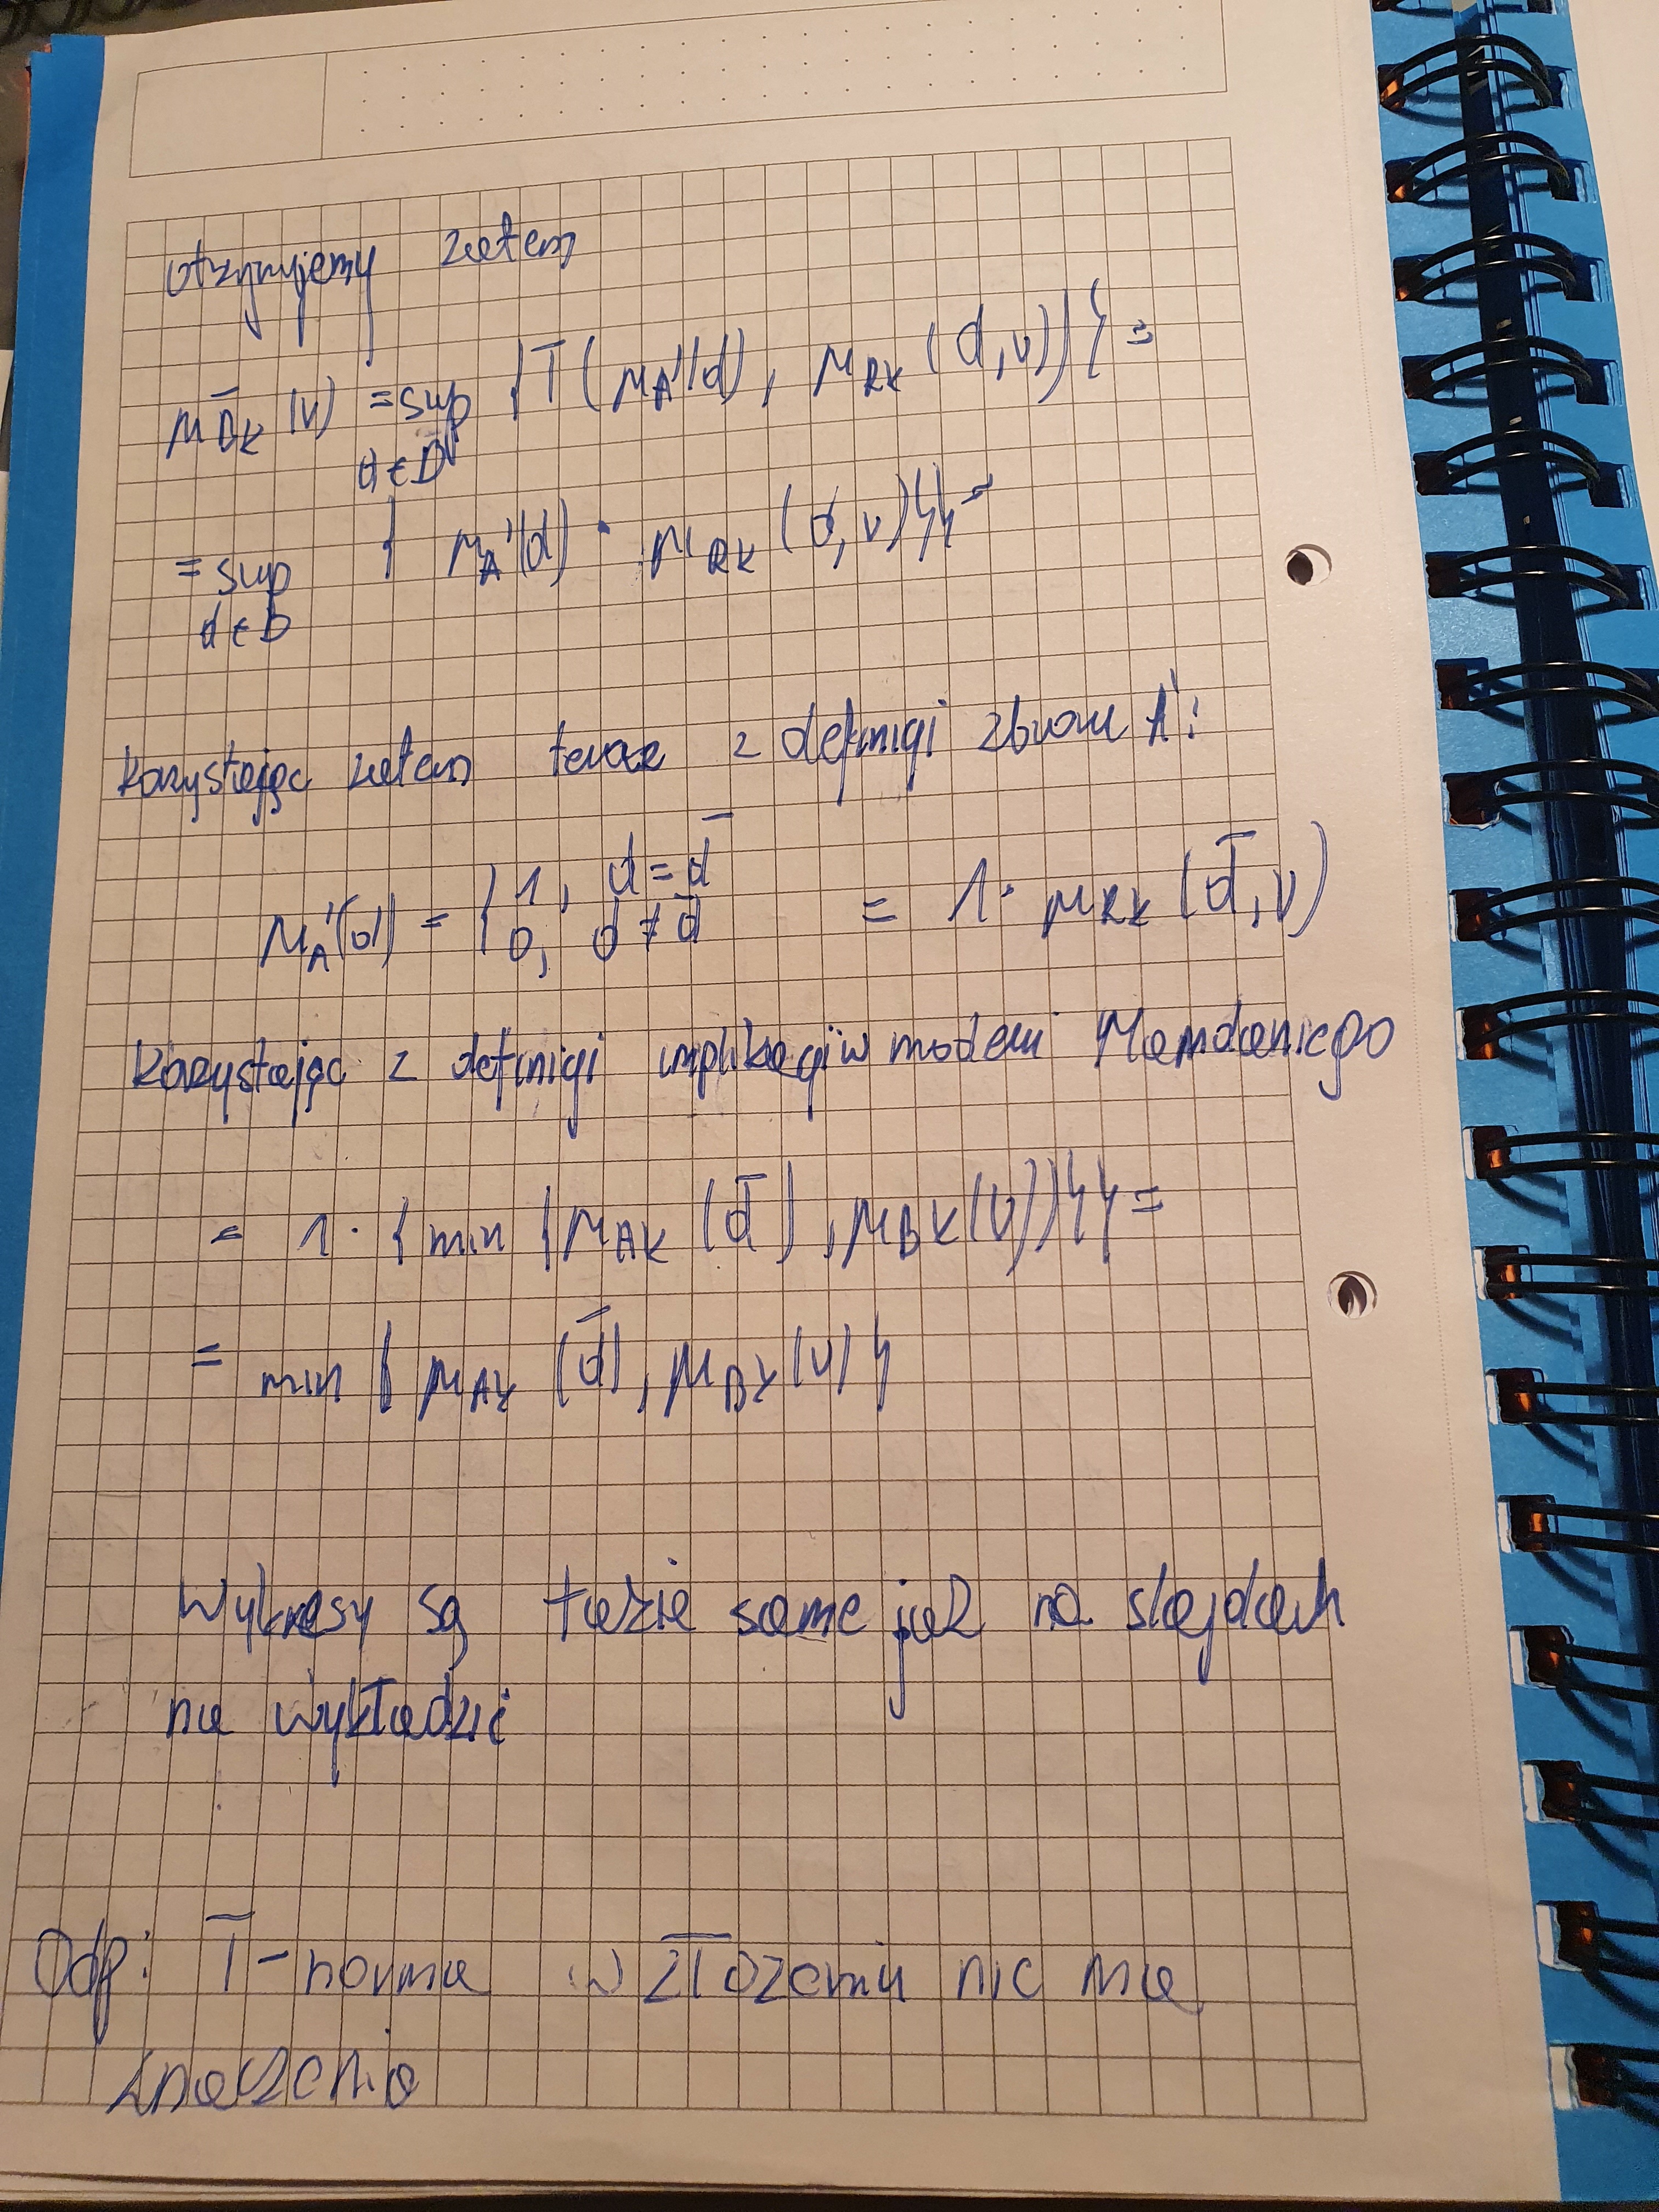 otrzymujemy zatem
μ_B̄K (v) = sup {T(μ_A'(d), μ_RK (d,v))} =
d ∈ D
= sup { μ_A'(d) · μ_RK (d,v)}} =
d ∈ D
korzystając zatem teraz z definicji zbioru A':
μ_A'(d) = { 1, d = d̄ = 1 · μ_RK (d̄,v)
0, d ≠ d̄
korzystając z definicji implikacji w modelu Mamdaniego
= 1 · { min {μ_AK (d̄), μ_BK (v)}}} =
= min { μ_AK (d̄), μ_BK (v) }
Wykresy są takie same jak na slajdach
na wykładzie
Odp: T-norma w złożeniu nic ma
znaczenia